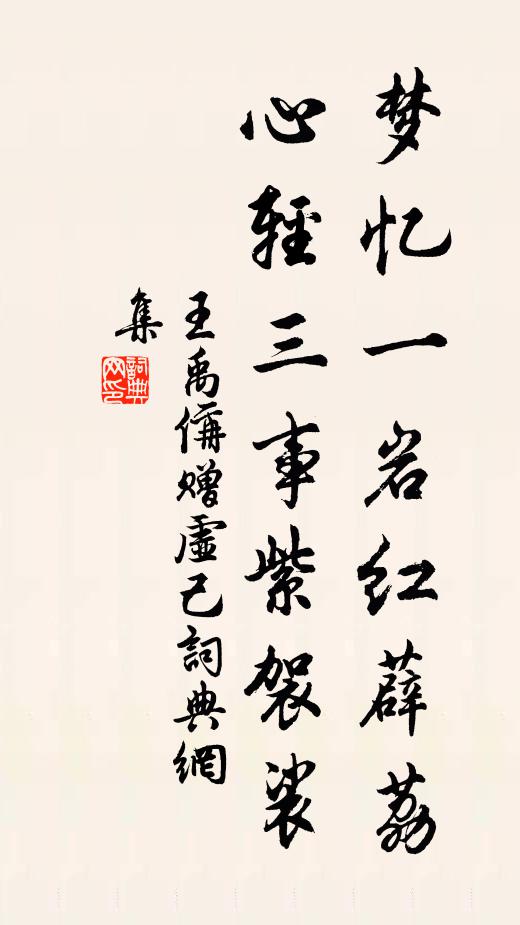 梦忆一岩红薜荔
心轻三事紫袈裟
王禹偁赠虚己詞典網
集
詞典網印